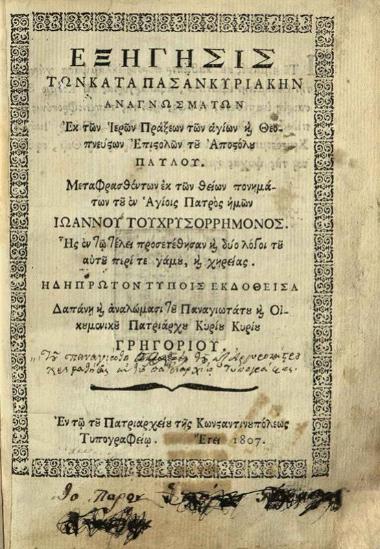 ΕΞΗΓΗΣΙΣ
ΤΩΝ ΚΑΤΑ ΠΑΣΑΝ ΚΥΡΙΑΚΗΝ
ΑΝΑΓΝΩΣΜΑΤΩΝ
Ἐκ τῶν Ἱερῶν Πράξεων τῶν ἁγίων ϗ Θεο-
πνεύςων Ἐπιςολῶν τȣ͂ Ἀποςόλȣ
ΠΑΥΛΟΥ.
Μεταφρασθέντων ἐκ τῶν θείων πονημά-
των τȣ͂ ἐν Ἁγίοις Πατρὸς ἡμῶν
ΙΩΑΝΝΟΥ ΤΟΥ ΧΡΥΣΟΡΡΗΜΟΝΟΣ.
Ἧς ἐν τῷ τέλει προσετέθησαν ϗ δύο λόγοι τȣ͂
αὐτȣ͂ περί τε γάμȣ, ϗ χηρείας.
ΗΔΗ ΠΡΩΤΟΝ ΤΥΠΟΙΣ ΕΚΔΟΘΕΙΣΑ
Δαπάνῃ ϗ ἀναλώμασι τȣ͂ Παναγιωτάτȣ ϗ Οἰ-
κȣμενικȣ͂ Πατριάρχȣ Κυρίȣ Κυρίȣ
ΓΡΗΓΟΡΙΟΥ.
Ἐν τῷ τȣ͂ Πατριαρχείȣ τῆς Κωνσαντινȣπόλεως
Τυπογραφείῳ. Ἔτει 1807.